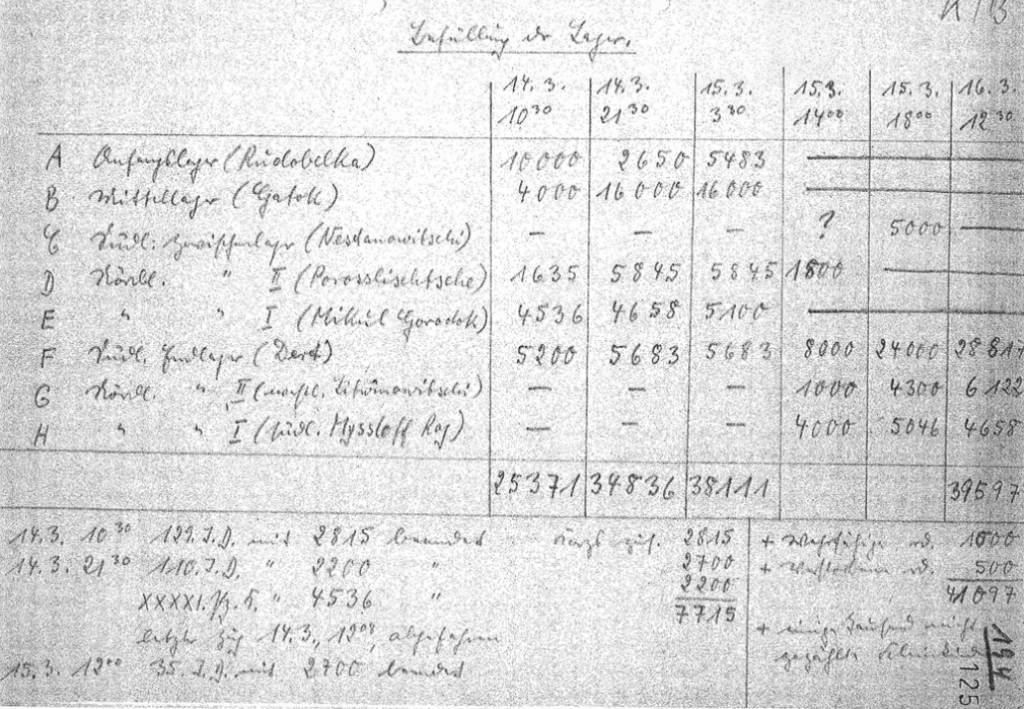 Befüllung der Lager.
14.3. 14.3. 15.3. 15.3. 15.3. 16.3.
10³⁰ 21³⁰ 3³⁰ 14⁰⁰ 18⁰⁰ 12³⁰
A Anfangslager (Rudobelka) 10000 2650 5483 — — —
B Mittellager (Gatok) 4000 16000 16000 — — —
C Südl. Zwischenlager (Nestanowitschi) — — — ? 5000 —
D Nördl. " II (Porosslischtsche) 1635 5845 5845 1800 — —
E " " I (Mikul Gorodok) 4536 4658 5100 — — —
F Südl. Endlager (Dert) 5200 5683 5683 8000 24000 28817
G Nördl. " II (westl. Litwinowitschi) — — — 1000 4300 6122
H " " I (südl. Myssloff Rog) — — — 4000 5046 4658
25371 34836 38111 39597
14.3. 10³⁰ 129.I.D. mit 2815 beendet
14.3. 21³⁰ 110.I.D. " 2200 "
XXXXI.Pz.K. " 4536 "
letzter Zug 14.3., 12⁰⁰, abgefahren
15.3. 12⁰⁰ 35.I.D. mit 2700 beendet
2815
2700
2200
7715
+ Wehrfähige rd. 1000
+ rd. 500
41097
+ einige Tausend nicht
gezählte Kleinkinder
194
125